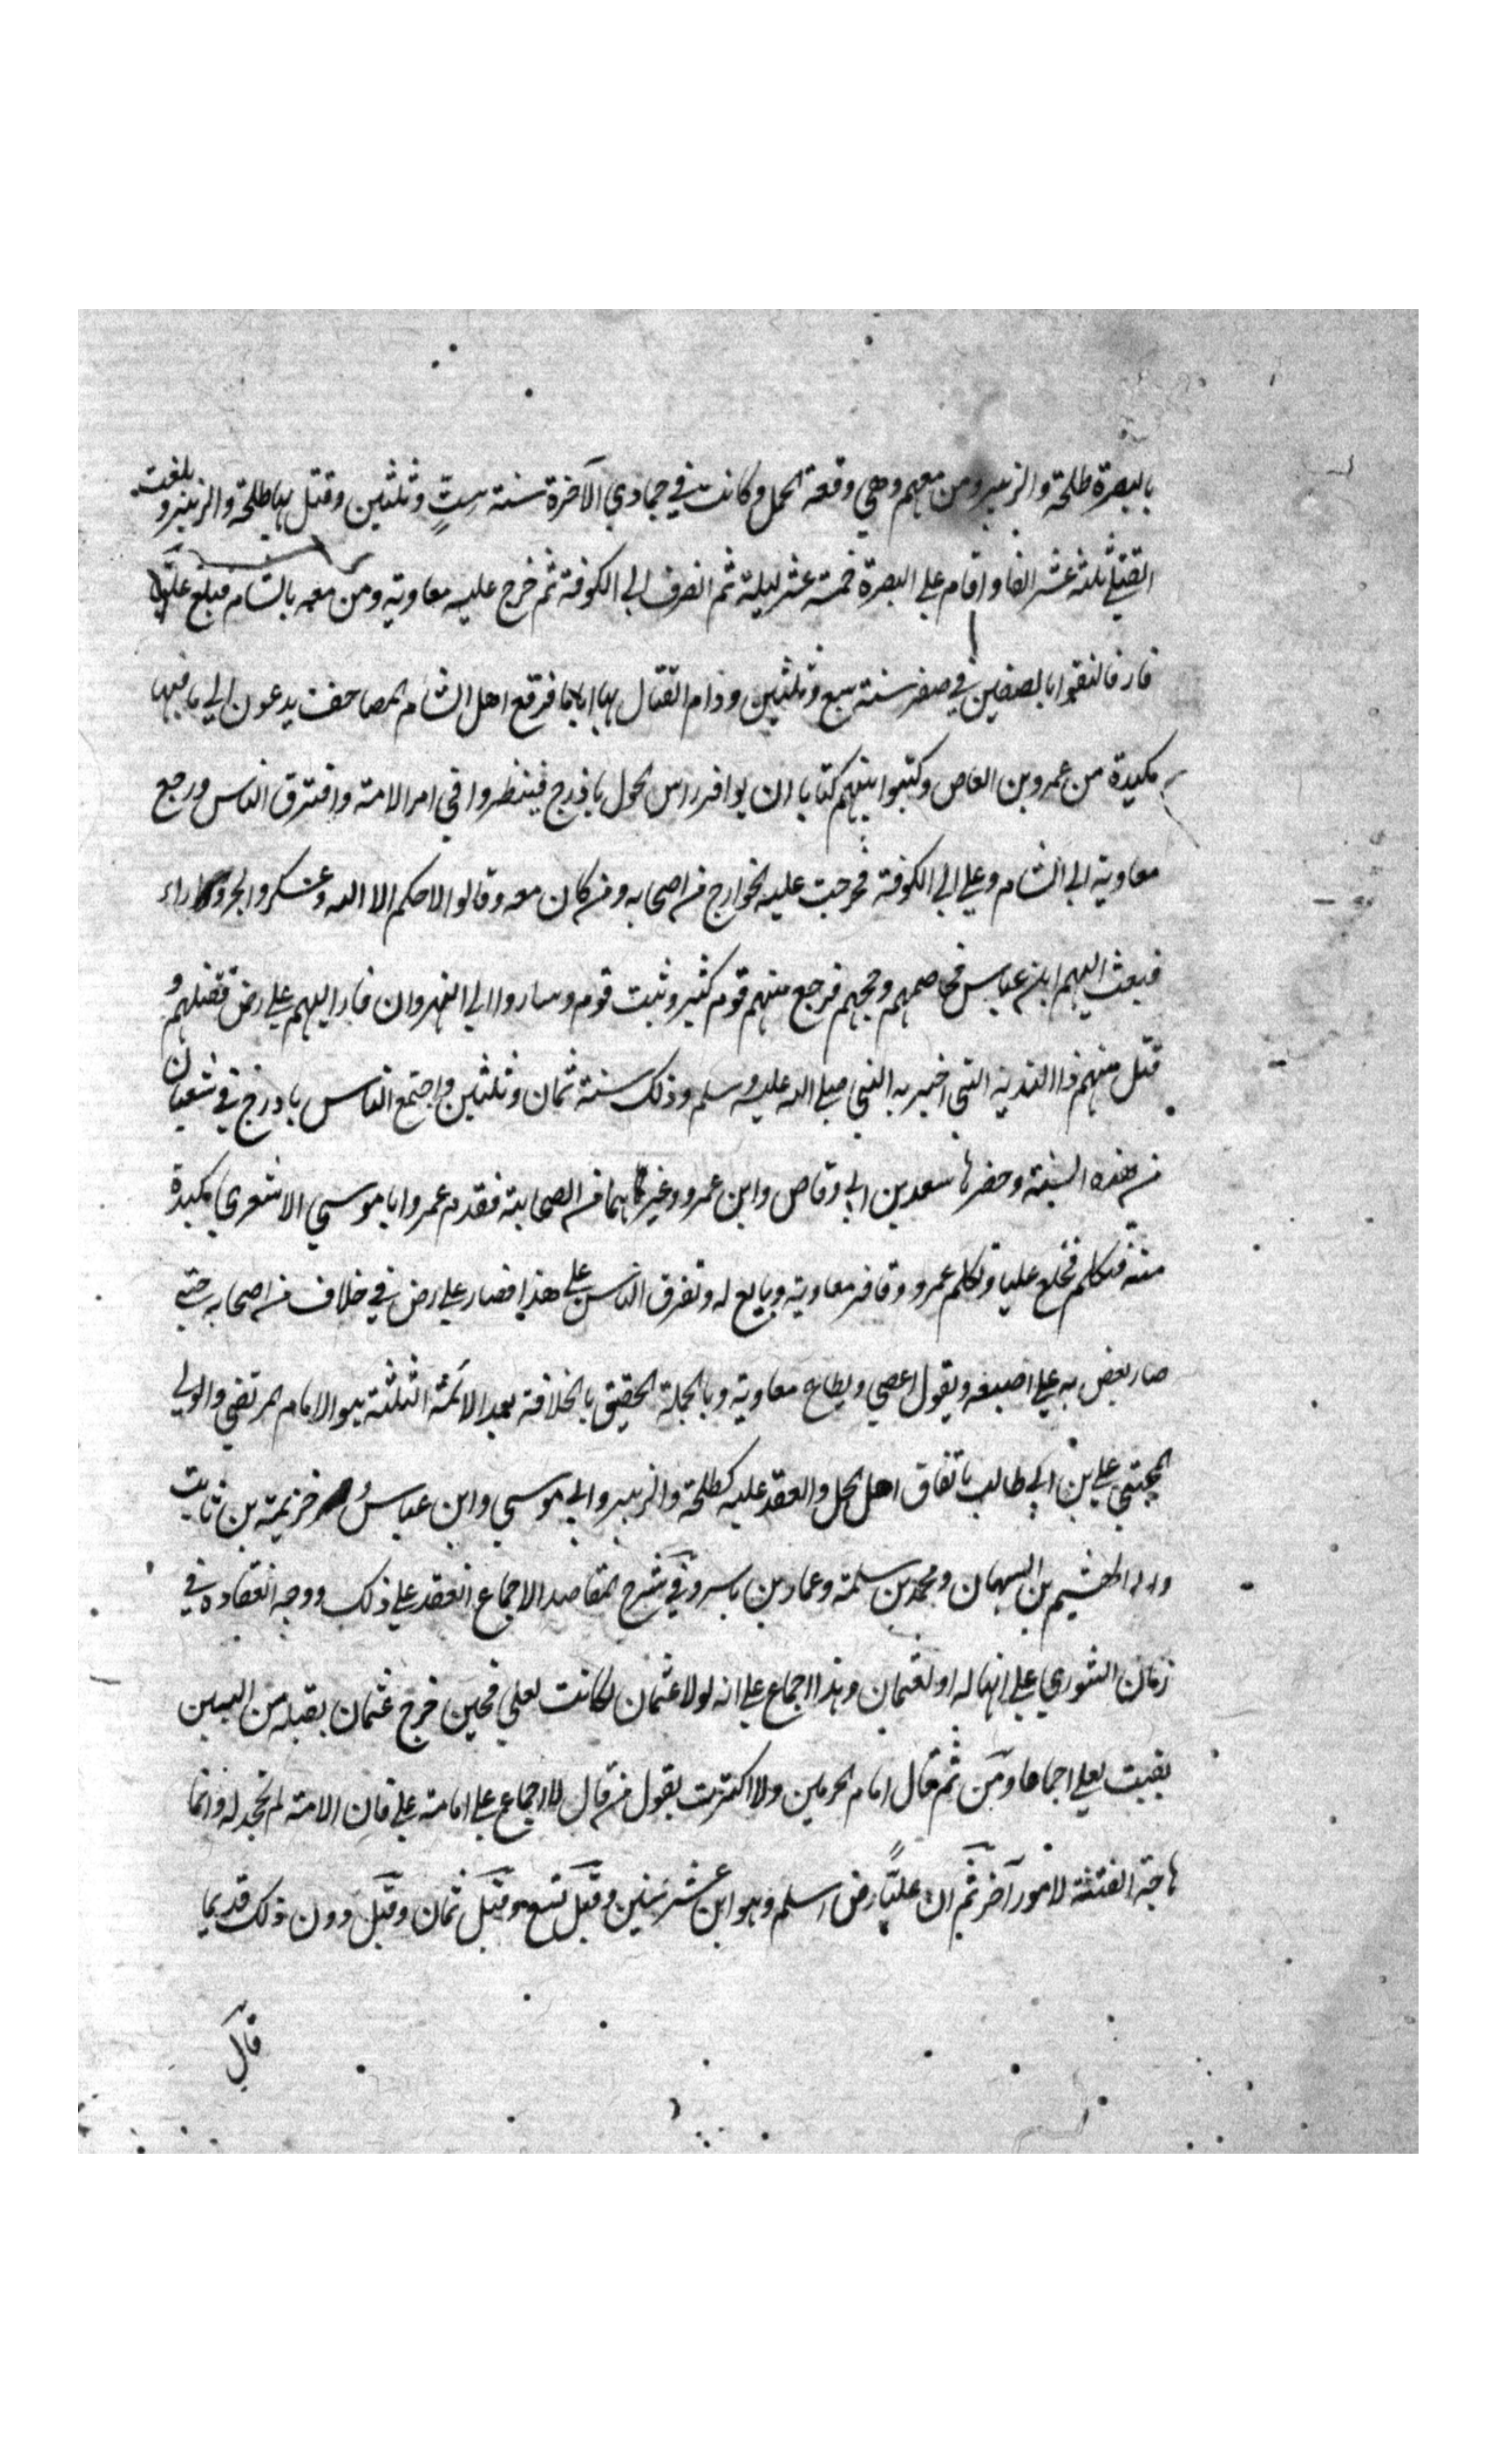 بالبصرة طلحة والزبير ومن معهم وهي وقعة الجمل وكانت في جمادي الآخرة سنة ستٍ وثلثين وقتل بها طلحة والزبير و بلغت
القتلى ثلثة عشر الفا واقام علي البصرة خمسة عشر ليلة ثم انصرف الي الكوفة ثم خرج عليه معاوية ومن معه بالشام فبلغ عليّا
فار فالتقوا بالصفين في صفر سنة سبع وثلثين ودام القتال بها اياما فرفع اهل الشام المصاحف يدعون الي ما فيها
مكيدة من عمرو بن العاص وكتبوا بينهم كتابا ان يوافر راس الحول باذرج فينظروا في امر الامة وافترق الناس ورجع
معاوية الي الشام وعلي الي الكوفة فخرجت عليه الخوارج من اصحابه ومن كان معه وقالوا لا حكم الا الله وعسكروا بحروراء
فبعث اليهم ابن عباس فخاصمهم وحجهم فرجع منهم قوم كثير وثبت قوم وساروا الي النهروان فار اليهم علي رض فقتلهم و
قتل منهم ذا الثدية التي اخبر به النبي صلي الله عليه وسلم وذلك سنة ثمان وثلثين واجتمع الناس باذرج في شعبان
من هذه السنة وحضرها سعد بن ابي وقاص وابن عمرو وغيرهما من الصحابة فقدم عمرو ابا موسي الاشعري مكيدة
منه فتكلم فخلع عليا وتكلم عمرو وقافر معاوية وبايع له وتفرق الناس علي هذا فصار علي رض في خلاف من اصحابه حتي
صار بعض به علي اصبعه ويقول اعصي ويطاع معاوية وبالجملة الحقيق بالخلافة بعد الائمة الثلثة هو الامام المرتضي والولي
المجتبي علي بن ابي طالب باتفاق اهل الحل والعقد عليه كطلحة والزبير وابي موسي وابن عباس و خزيمة بن ثابت
الهشيم بن التيهان ومحمد بن سلمة وعمار بن ياسر وفي شرح المقاصد الاجماع انعقد علي ذلك ووجه انعقاده في
زمان الشوري علي انها له او لعثمان وهذا اجماع علي انه لولا عثمان لكانت لعلي فحين خرج عثمان بقتله من البين
بقيت لعلي اجماعا ومن ثم قال امام الحرمين ولا اكترث بقول من قال لا اجماع علي امامة علي فان الامة لم تجحد له وانما
هاجة الفتنة لامور آخر ثم ان عليًّا رض اسلم وهو ابن عشر سنين وقيل تسع وقيل ثمان وقيل دون ذلك قديما
قال